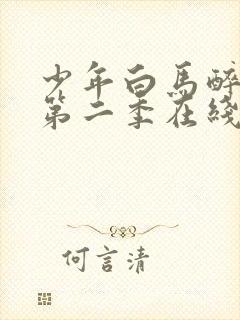 少年白馬醉
第二季在綫
何言清